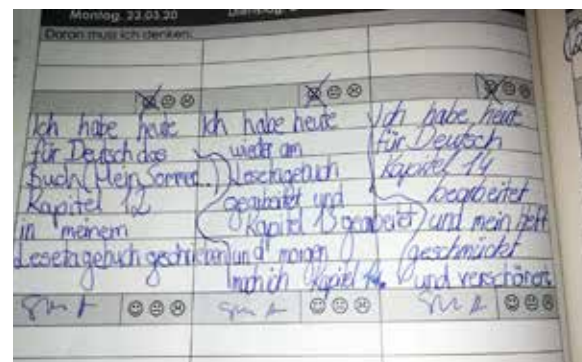 Montag, 22.03.20
Dienstag,
Daran muss ich denken:
Ich habe heute
für Deutsch das
Buch (Mein Sommer..)
Kapitel 12
in meinem
Lesetagebuch geschrieben
Ich habe heute
wieder am
Lesetagebuch
gearbeitet und
Kapitel 13 gearbeitet
und morgen
mach ich Kapitel 14.
Ich habe heute
für Deutsch
Kapitel 14
bearbeitet
und mein Heft
geschmückt
und verschönert